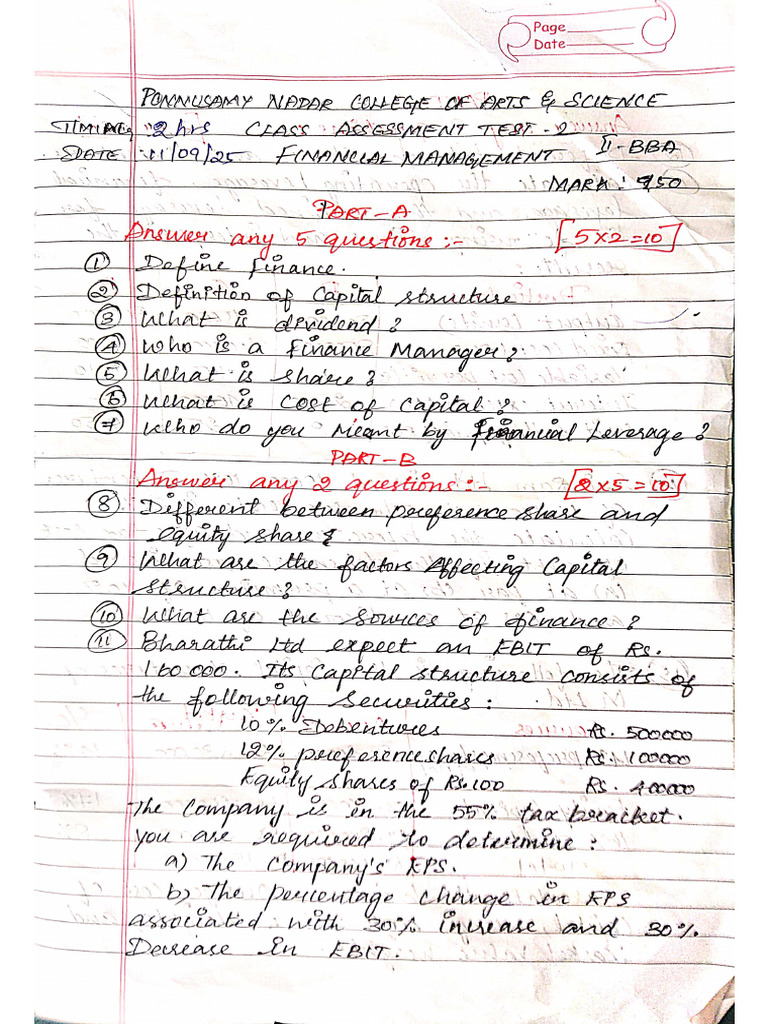 Page
Date
PONNUSAMY NADAR COLLEGE OF ARTS & SCIENCE
TIMING : 2 hrs CLASS ASSESSMENT TEST - 2
DATE : 11/09/25 FINANCIAL MANAGEMENT II-BBA
MARK : 50
PART-A
Answer any 5 questions :- [5×2=10]
① Define finance.
② Definition of Capital structure
③ What is dividend ?
④ Who is a Finance Manager ?
⑤ What is share ?
⑥ What is cost of capital ?
⑦ Who do you Meant by Financial Leverage ?
PART-B
Answer any 2 questions :- [2×5=10]
⑧ Different between preference share and
equity share
⑨ What are the factors Affecting Capital
structure ?
⑩ What are the sources of finance ?
⑪ Bharathi Ltd expect an EBIT of Rs.
160000. Its Capital structure consists of
the following securities :
10% Debentures Rs. 500000
12% preference shares Rs. 100000
Equity shares of Rs.100 Rs. 400000
The Company is in the 55% tax bracket.
you are required to determine :
a) The Company's EPS.
b) The percentage change in EPS
associated with 30% increase and 30%
Decrease in EBIT.